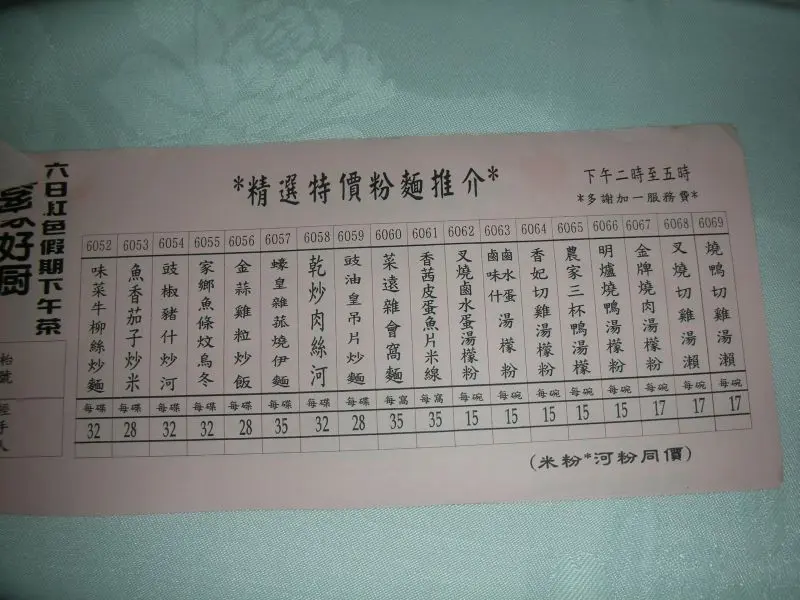 *精選特價粉麵推介*
下午二時至五時
*多謝加一服務費*
六日紅色假期下午茶
好厨
6052 味菜牛柳絲炒麵 每碟 32
6053 魚香茄子炒米 每碟 28
6054 豉椒豬什炒河 每碟 32
6055 家鄉魚條炆烏冬 每碟 32
6056 金蒜雞粒炒飯 每碟 28
6057 蠔皇雜菰燒伊麵 每碟 35
6058 乾炒肉絲河 每碟 32
6059 豉油皇吊片炒麵 每碟 28
6060 菜遠雜會窩麵 每窩 35
6061 香茜皮蛋魚片米線 每窩 35
6062 叉燒鹵水蛋湯檬粉 每碗 15
6063 鹵水蛋鹵味什湯檬粉 每碗 15
6064 香妃切雞湯檬粉 每碗 15
6065 農家三杯鴨湯檬 每碗 15
6066 明爐燒鴨湯檬粉 每碗 15
6067 金牌燒肉湯檬粉 每碗 17
6068 叉燒切雞湯瀨 每碗 17
6069 燒鴨切雞湯瀨 每碗 17
(米粉*河粉同價)